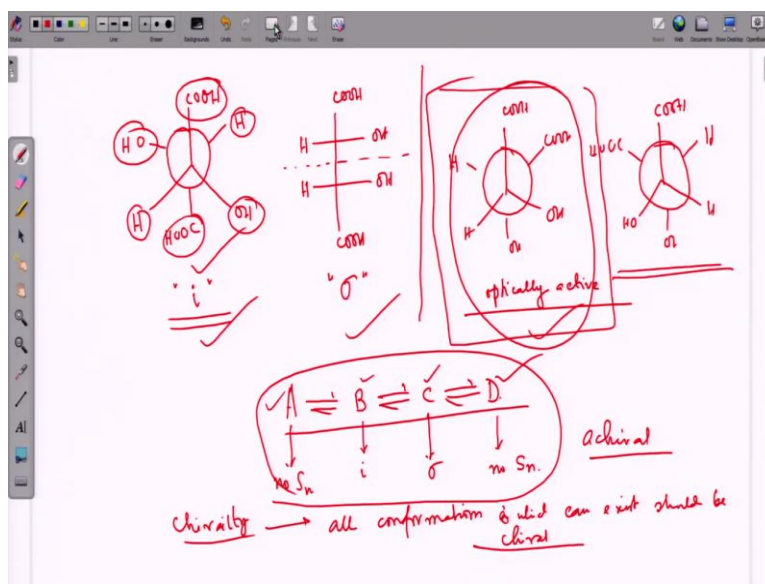 Stylus Color Line Eraser Backgrounds Undo Redo Pages Previous Next Erase Board Web Documents Show Desktop OpenBoard
COOH
HO H
H OH
HOOC
"i"
COOH
H OH
H OH
COOH
"σ"
COOH
H COOH
H OH
OH
optically active
COOH
HOOC H
HO H
OH
A ⇌ B ⇌ C ⇌ D
no Sn i σ no Sn.
achiral
chirailty → all conformation which can exist should be
chiral